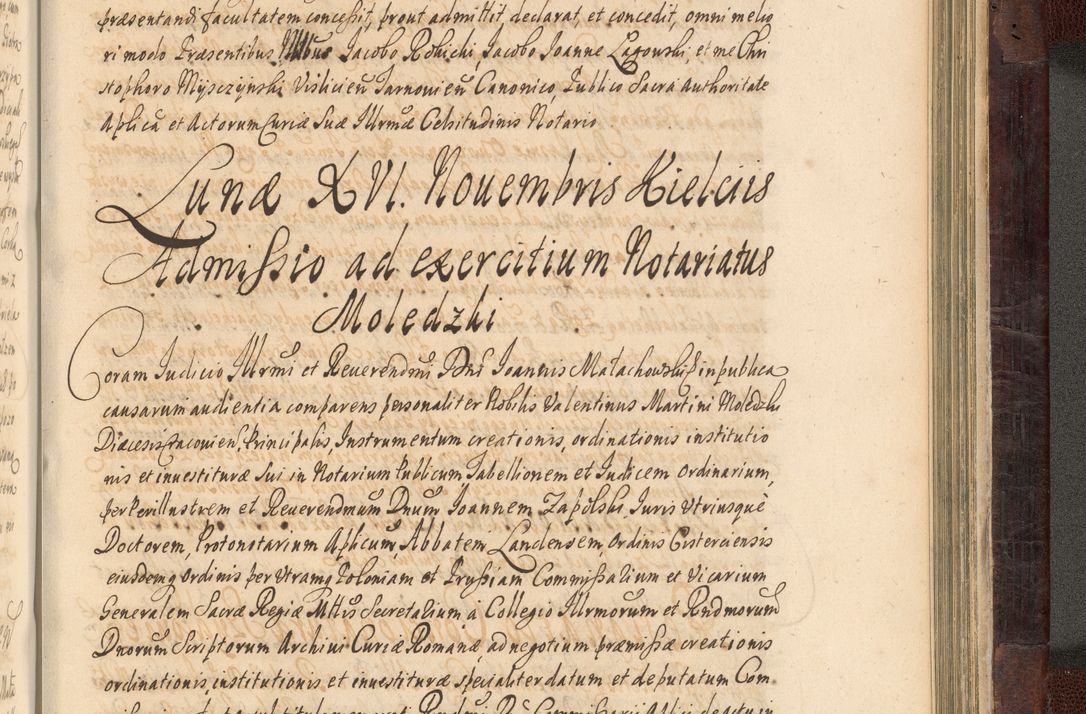 præsentandi facultatem concessit, prout admittit, declarat, et concedit, omni melio
ri modo Præsentibus Jacobo Rokichi, Jacobo Joanne Lagowski, et me Chri
stophoro Myszczynski Visliciensi Tarnoviensi Canonico, Publico Sacra Authoritate
Aplica et Actorum Curiæ Suæ Illrmæ Celsitudinis Notario
Lunæ XVI. Nouembris Kielciis
Admissio ad exercitium Notariatus
Moledzki
Coram Judicio Illrmi et Reuerendmi Dni Joannis Małachowski Epi in publica
causarum audientia comparens personaliter Nobilis Valentinus Martini Moledzki
Diæcesis Cracouien, Principalis, Instrumentum creationis, ordinationis institutio
nis et inuestituræ sui in Notarium Publicum Tabellionem et Judicem Ordinarium,
per Perillustrem et Reuerendmum Dnum Joannem Zapolski Juris Vtriusque
Doctorem, Protonotarium Aplicum, Abbatem Landensem, Ordinis Cisterciensis
eiusdemq Ordinis per Vtramq Poloniam et Prussiam Commissarium et Vicarium
Generalem Sacræ Regiæ Mttis Secretarium à Collegio Illrmorum et Rndmorum
Dnorum Scriptorum Archiui Curiæ Romanæ, ad negotium præmissæ creationis
ordinationis, institutionis et inuestituræ specialiter datum et deputatum Com